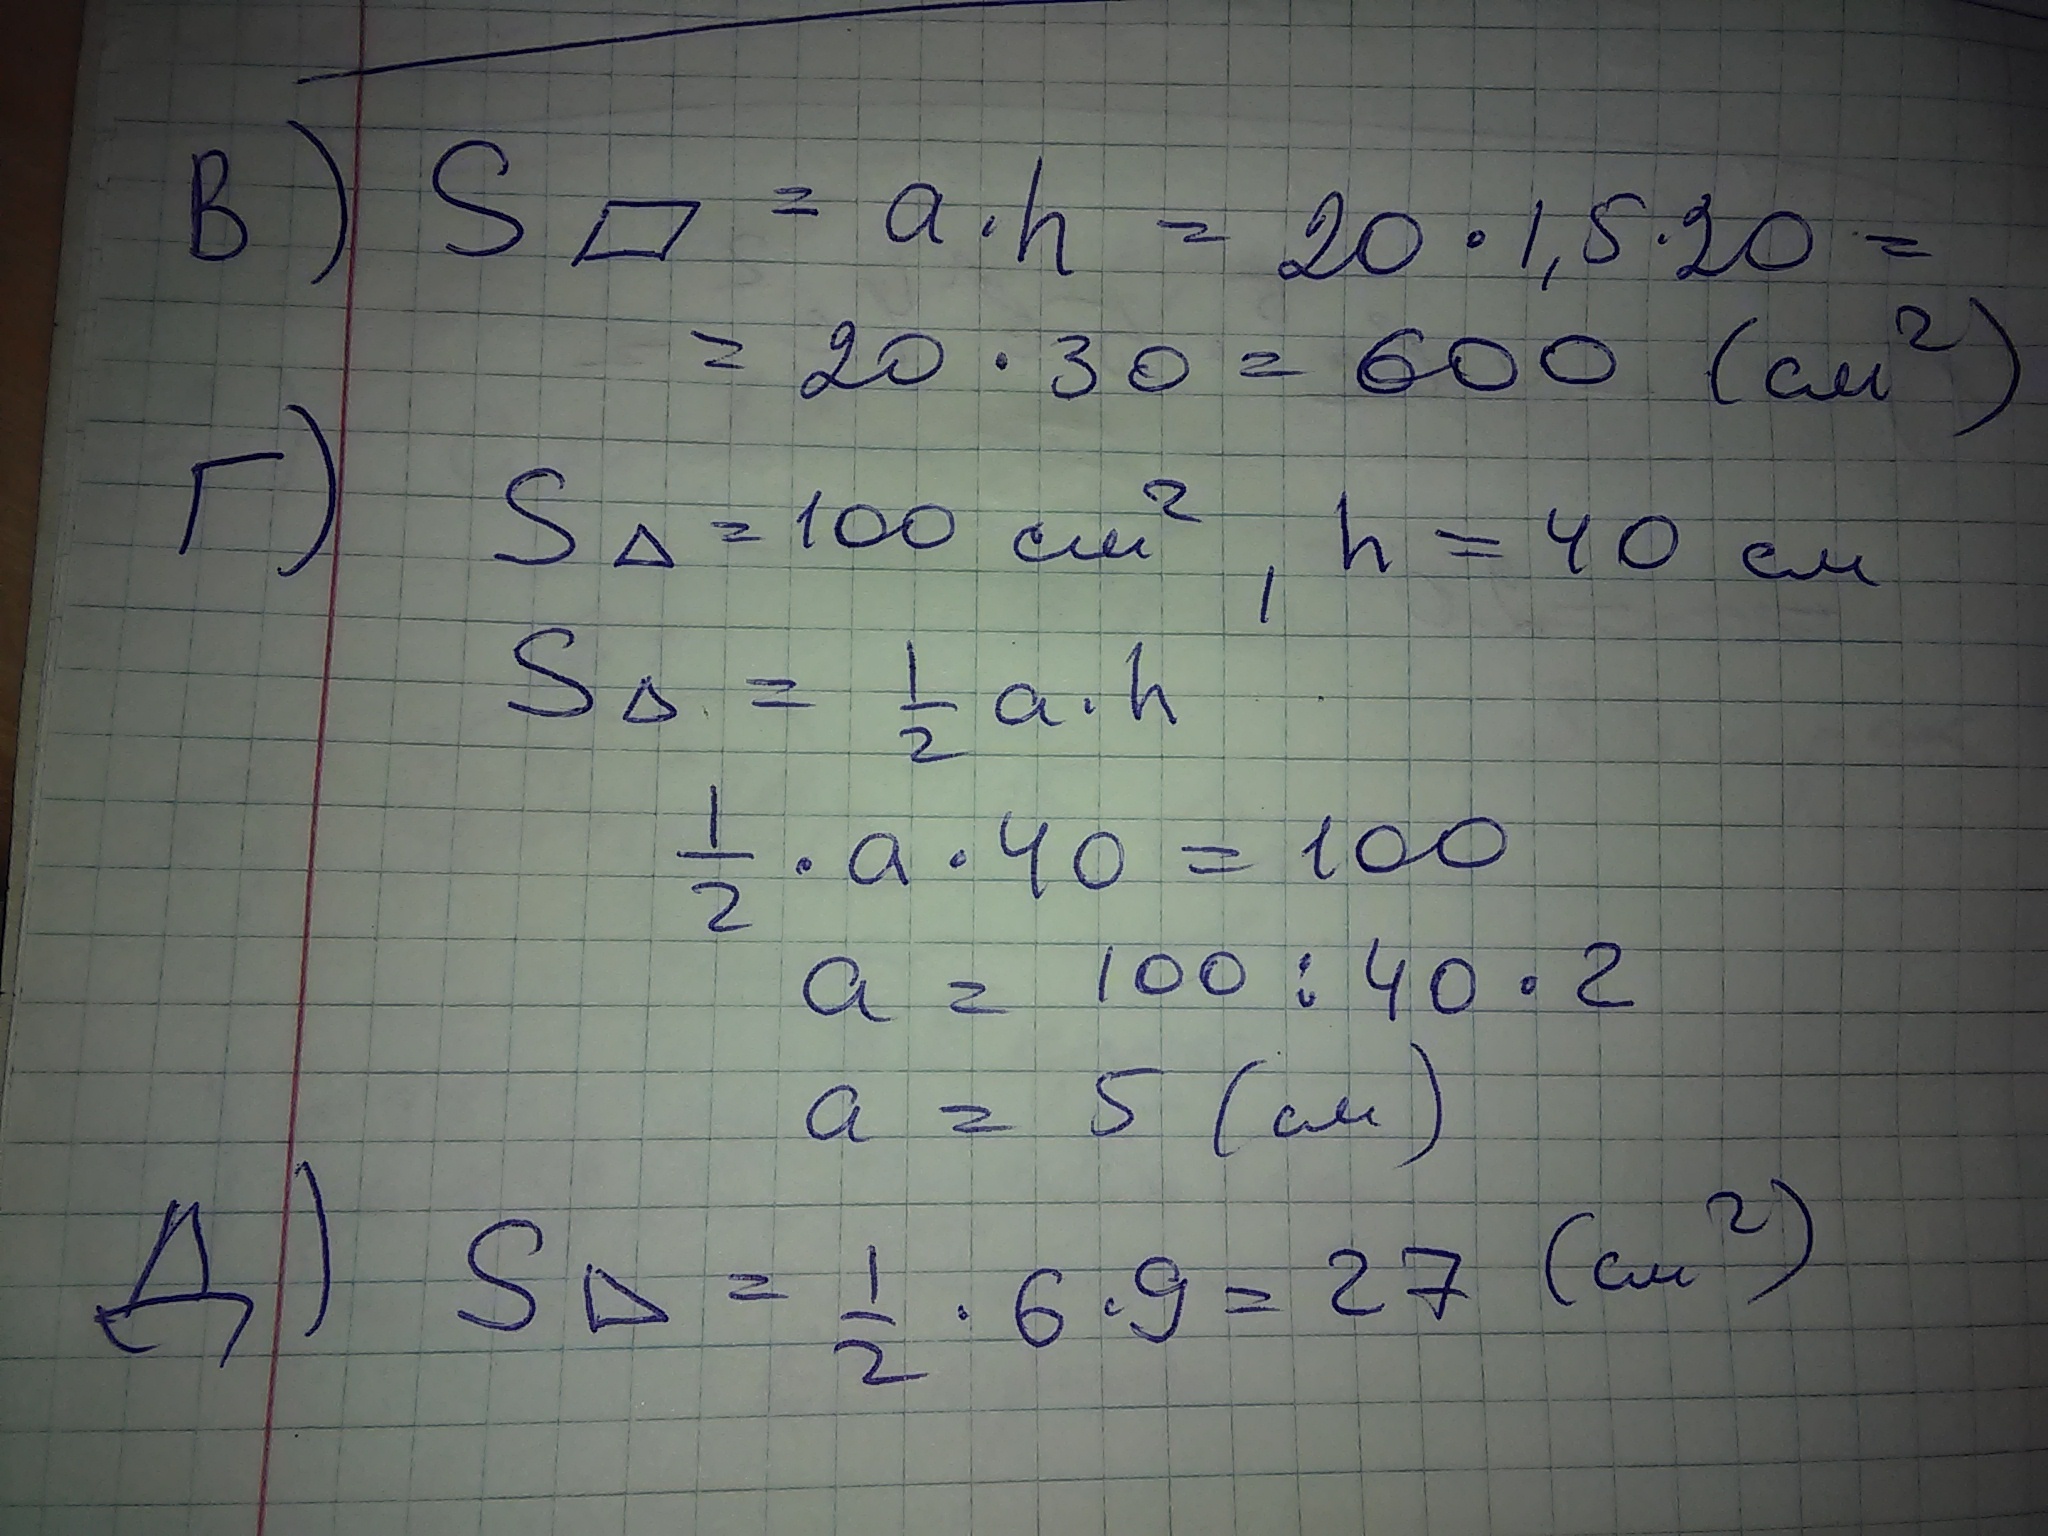 В) S▱ = a·h = 20·1,5·20 =
= 20·30 = 600 (см²)
Г) S△ = 100 см², h = 40 см
S△ = 1/2 a·h
1/2·a·40 = 100
a = 100:40·2
a = 5 (см)
Д) S△ = 1/2·6·9 = 27 (см²)